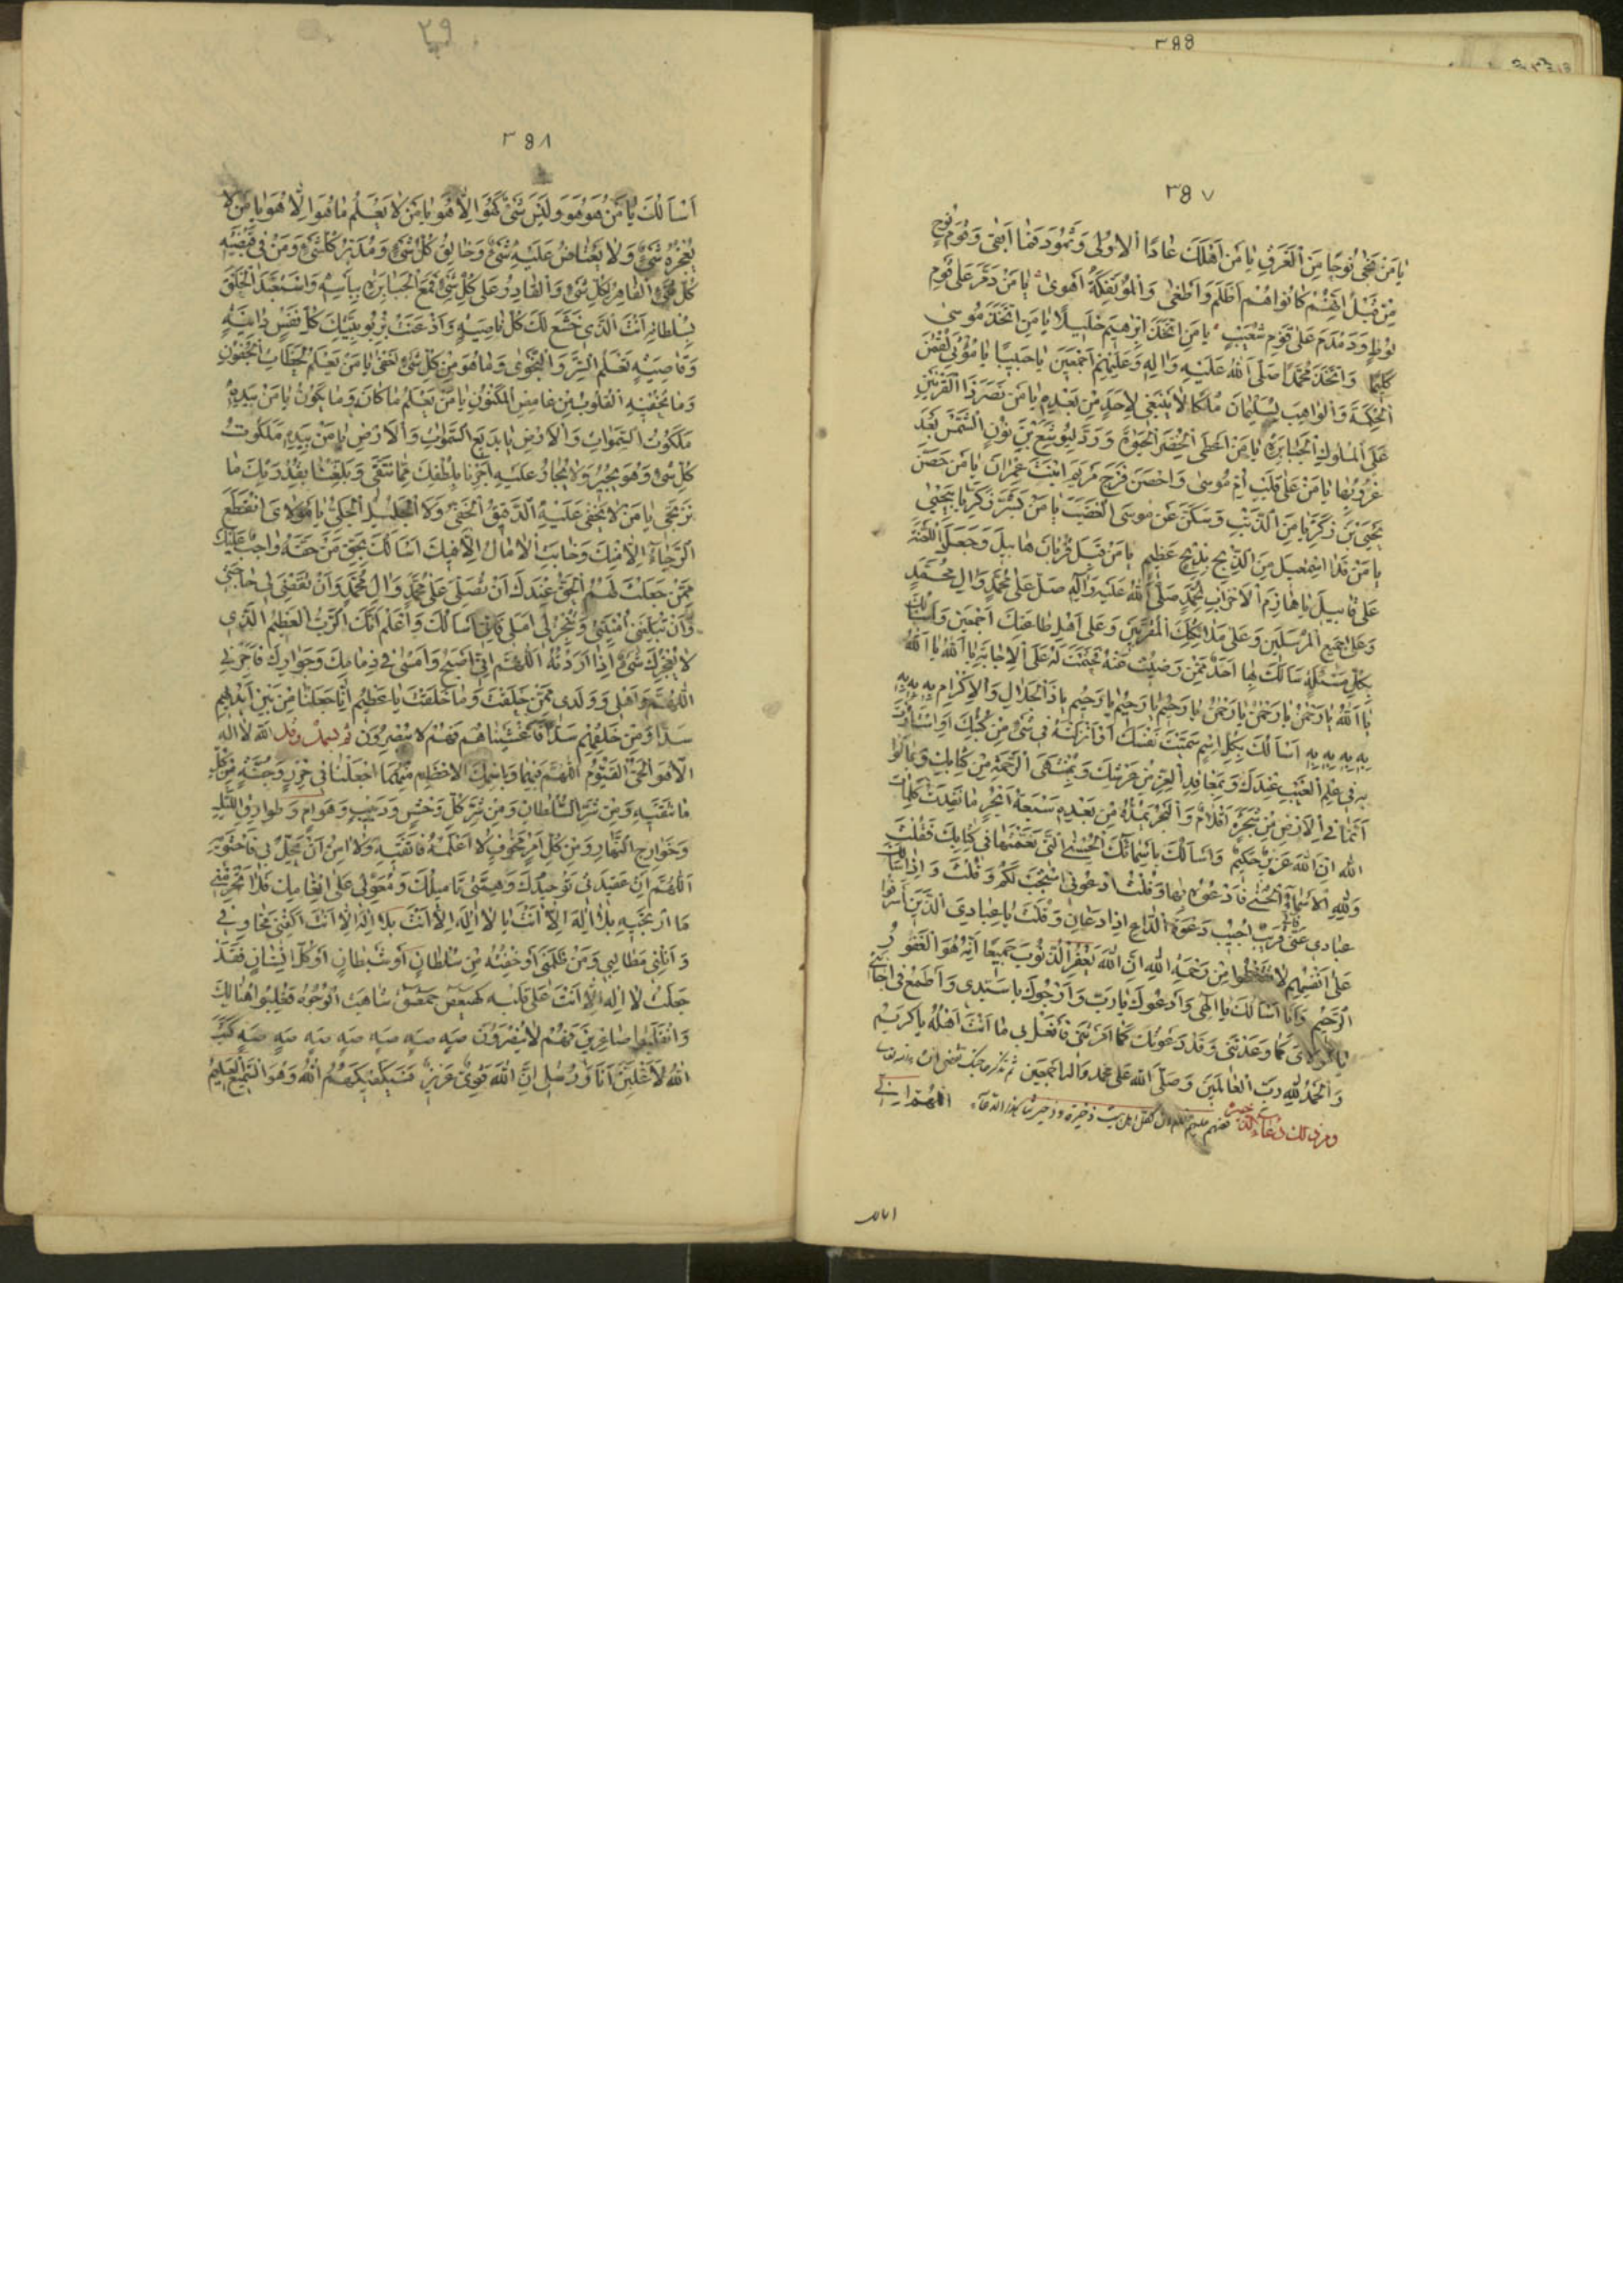 ٣٥٧
يا مَنْ نَجّى نُوحًا مِنَ الْغَرَقِ يا مَنْ اَهْلَكَ عادًا الْاُولى وَثَمُودَ فَما اَبْقى وَقَوْمَ نُوحٍ
مِنْ قَبْلُ اِنَّهُمْ كانُوا هُمْ اَظْلَمَ وَاَطْغى وَالْمُؤْتَفِكَةَ اَهْوى يا مَنْ دَمَّرَ عَلى قَوْمِ
لُوطٍ وَدَمْدَمَ عَلى قَوْمِ شُعَيْبٍ يا مَنِ اتَّخَذَ اِبْرهِيمَ خَلِيلًا يا مَنِ اتَّخَذَ مُوسى
كَلِيمًا وَاتَّخَذَ مُحَمَّدًا صَلَّى اللهُ عَلَيْهِ وَالِهِ وَعَلَيْهِمْ اَجْمَعِينَ حَبِيبًا يا مُؤْتِيَ لُقْمنَ
الْحِكْمَةَ وَالْواهِبَ لِسُلَيْمانَ مُلْكًا لا يَنْبَغي لِاَحَدٍ مِنْ بَعْدِهِ يا مَنْ نَصَرَ ذَا الْقَرْنَيْنِ
عَلَى الْمُلُوكِ الْجَبابِرَةِ يا مَنْ اَعْطَى الْخِضْرَ الْحَيوةَ وَرَدَّ لِيُوشَعَ بْنِ نُونٍ الشَّمْسَ بَعْدَ
غُرُوبِها يا مَنْ عَلى قَلْبِ اُمِّ مُوسى وَاَحْصَنَ فَرْجَ مَرْيَمَ ابْنَتَ عِمْرانَ يا مَنْ حَصَّنَ
يَحْيَى بْنَ زَكَرِيّا مِنَ الذَّنْبِ وَسَكَّنَ عَنْ مُوسَى الْغَضَبَ يا مَنْ بَشَّرَ زَكَرِيّا بِيَحْيى
يا مَنْ فَدا اِسْمعِيلَ مِنَ الذَّبْحِ بِذِبْحٍ عَظِيمٍ يا مَنْ قَبِلَ قُرْبانَ هابِيلَ وَجَعَلَ اللَّعْنَةَ
عَلى قابِيلَ يا هازِمَ الْاَحْزابِ لِمُحَمَّدٍ صَلَّى اللهُ عَلَيْهِ وَآلِهِ صَلِّ عَلى مُحَمَّدٍ وَالِ مُحَمَّدٍ
وَعَلى جَمِيعِ الْمُرْسَلِينَ وَعَلى مَلائِكَتِكَ الْمُقَرَّبِينَ وَعَلى اَهْلِ طاعَتِكَ اَجْمَعِينَ وَاَسْاَلُكَ
بِكُلِّ مَسْئَلَةٍ سَاَلَكَ بِها اَحَدٌ مِمَّنْ رَضِيْتَ عَنْهُ فَحَتَمْتَ لَهُ عَلَى الْاِجابَةِ يا اَللهُ يا اَللهُ
يا اَللهُ يا رَحْمنُ يا رَحْمنُ يا رَحْمنُ يا رَحِيمُ يا رَحِيمُ يا رَحِيمُ يا ذَا الْجَلالِ وَالْاِكْرامِ بِهِ بِهِ
بِهِ بِهِ بِهِ بِهِ اَسْاَلُكَ بِكُلِّ اسْمٍ سَمَّيْتَ نَفْسَكَ اَوْ اَنْزَلْتَهُ في شَيْءٍ مِنْ كُتُبِكَ اَوِ اسْتَأْثَرْتَ
بِهِ في عِلْمِ الْغَيْبِ عِنْدَكَ وَبِمَعاقِدِ الْعِزِّ مِنْ عَرْشِكَ وَبِمُنْتَهَى الرَّحْمَةِ مِنْ كِتابِكَ وَبِما لَوْ
اَنَّما فِي الْاَرْضِ مِنْ شَجَرَةٍ اَقْلامٌ وَالْبَحْرُ يَمُدُّهُ مِنْ بَعْدِهِ سَبْعَةُ اَبْحُرٍ ما نَفِدَتْ كَلِماتُ
اللهِ اِنَّ اللهَ عَزِيزٌ حَكِيمٌ وَاَسْاَلُكَ بِاَسْمائِكَ الْحُسْنى الَّتي نَعَتَّها في كِتابِكَ فَقُلْتَ
وَلِلّهِ الْاَسْماءُ الْحُسْنى فَادْعُوهُ بِها وَقُلْتَ ادْعُوني اَسْتَجِبْ لَكُمْ وَقُلْتَ وَاِذا سَاَلَكَ
عِبادي عَنّي فَاِنّي قَرِيبٌ اُجِيبُ دَعْوَةَ الدّاعِ اِذا دَعانِ وَقُلْتَ يا عِبادِيَ الَّذِينَ اَسْرَفُوا
عَلى اَنْفُسِهِمْ لا تَقْنَطُوا مِنْ رَحْمَةِ اللهِ اِنَّ اللهَ يَغْفِرُ الذُّنُوبَ جَمِيعًا اِنَّهُ هُوَ الْغَفُورُ
الرَّحِيمُ وَاَنَا اَسْاَلُكَ يا اِلهي وَاَدْعُوكَ يا رَبِّ وَاَرْجُوكَ يا سَيِّدي وَاَطْمَعُ في اِجابَتي
يا مَوْلايَ كَما وَعَدْتَني وَقَدْ دَعَوْتُكَ كَما اَمَرْتَني فَافْعَلْ بي ما اَنْتَ اَهْلُهُ يا كَرِيمُ
وَالْحَمْدُ لِلّهِ رَبِّ الْعالَمِينَ وَصَلَّى اللهُ عَلى مُحَمَّدٍ وَالِهِ اَجْمَعِينَ ثم تذكر حاجتك تقضى ان شاء الله تعالى
ومن ذلك دعاء
٣٥٨
اَسْاَلُكَ يا مَنْ هُوَ هُوَ وَلَيْسَ شَيْءٌ كَهُوَ اِلّا هُوَ يا مَنْ لا يَعْلَمُ ما هُوَ اِلّا هُوَ يا مَنْ لا
يُعْجِزُهُ شَيْءٌ وَلا يَعْتاصُ عَلَيْهِ شَيْءٌ وَخالِقُ كُلِّ شَيْءٍ وَمُدَبِّرُ كُلِّ شَيْءٍ وَمَنْ في قَبْضَتِهِ
كُلُّ شَيْءٍ الْقاهِرُ لِكُلِّ شَيْءٍ وَالْقادِرُ عَلى كُلِّ شَيْءٍ قَمَعَ الْجَبابِرَةَ بِبَأْسِهِ وَاسْتَعْبَدَ الْخَلْقَ
بِسُلْطانِهِ اَنْتَ الَّذي خَشَعَ لَكَ كُلُّ ناصِيَةٍ وَاَذْعَنَتْ بِرُبُوبِيَّتِكَ كُلُّ نَفْسٍ دانِيَةٍ
وَقاصِيَةٍ تَعْلَمُ السِّرَّ وَالنَّجْوى وَما هُوَ مِنْ كُلِّ شَيْءٍ اَخْفى يا مَنْ يَعْلَمُ لَحَظاتِ الْجُفُونِ
وَما تُخْفِيهِ الْقُلُوبُ مِنْ غامِضِ الْمَكْنُونِ يا مَنْ يَعْلَمُ ما كانَ وَما يَكُونُ يا مَنْ بِيَدِهِ
مَلَكُوتُ السَّمواتِ وَالْاَرْضِ يا بَدِيعَ السَّمواتِ وَالْاَرْضِ يا مَنْ بِيَدِهِ مَلَكُوتُ
كُلِّ شَيْءٍ وَهُوَ يُجِيرُ وَلا يُجارُ عَلَيْهِ اَجِرْنا بِلُطْفِكَ مِمّا نَتَّقي وَبَلِّغْنا بِقُدْرَتِكَ ما
نَرْتَجي يا مَنْ لا يَخْفى عَلَيْهِ الدَّقِيقُ الْخَفِيُّ وَلَا الْجَلِيلُ الْجَلِيُّ يا مَوْلايَ انْقَطَعَ
الرَّجاءُ اِلّا مِنْكَ وَخابَتِ الْامالُ اِلّا فِيكَ اَسْاَلُكَ بِحَقِّ مَنْ حَقُّهُ واجِبٌ عَلَيْكَ
مِمَّنْ جَعَلْتَ لَهُمُ الْحَقَّ عِنْدَكَ اَنْ تُصَلِّيَ عَلى مُحَمَّدٍ وَالِ مُحَمَّدٍ وَاَنْ تَقْضِيَ لي حاجَتي
وَاَنْ تُبَلِّغَني اُمْنِيَتي وَتُنْجِزَ لي اَمَلي فَاِنّي اَسْاَلُكَ وَاَعْلَمُ اَنَّكَ الرَّبُّ الْعَظِيمُ الَّذي
لا يُعْجِزُكَ شَيْءٌ اِذا اَرَدْتَهُ اَللّهُمَّ اِنّي اَصْبَحُ وَاَمْسى في ذِمامِكَ وَجِوارِكَ فَاَجِرْني
اَللّهُمَّ وَاَهْلي وَوَلَدي مِمَّنْ خَلَقْتَ وَما خَلَقْتَ يا عَظِيمُ اِنّا جَعَلْنا مِنْ بَيْنِ اَيْدِيهِمْ
سَدًّا وَمِنْ خَلْفِهِمْ سَدًّا فَاَغْشَيْناهُمْ فَهُمْ لا يُبْصِرُونَ الله لا اله
اِلّا هُوَ الْحَيُّ الْقَيُّومُ اَللّهُمَّ بِهِما وَبِاسْمِكَ الْاَعْظَمِ مِنْهُمَا اجْعَلْنا في حِرْزٍ وَجُنَّةٍ مِنْ كُلِّ
ما نَتَّقِيهِ وَمِنْ شَرِّ السُّلْطانِ وَمِنْ شَرِّ كُلِّ وَحْشٍ وَدَبِيبٍ وَهَوامٍّ وَطَوارِقِ اللَّيْلِ
وَخَوارِجِ النَّهارِ وَمِنْ كُلِّ اَمْرٍ مَخُوفٍ لا اَعْلَمُهُ فَاَتَّقِيهِ وَلا امَنُ اَنْ يَحِلَّ بي فَاَحْتَوِيهِ
اَللّهُمَّ اِنَّ عَقِيدَتي تَوْحِيدُكَ وَهِمَّتي تَأْمِيلُكَ وَمُعَوَّلي عَلى اِنْعامِكَ فَلا تَحْرِمْني
ما اَرْتَجِيهِ بِلا اِلهَ اِلّا اَنْتَ يا لا اِلهَ اِلّا اَنْتَ بِلا اِلهَ اِلّا اَنْتَ اكْفِني مَخاوِفي
وَاَنِلْني مَطالِبي وَمَنْ ظَلَمَني اَوْ خِفْتُهُ مِنْ سُلْطانٍ اَوْ شَيْطانٍ اَوْ كُلِّ اِنْسانٍ فَقَدْ
جَعَلْتُ لا اِلهَ اِلّا اَنْتَ عَلى قَلْبِهِ كهيعص حمعسق شاهَتِ الْوُجُوهُ فَغُلِبُوا هُنالِكَ
وَانْقَلَبُوا صاغِرِينَ فَهُمْ لا يُبْصِرُونَ صَهٍ صَهٍ صَهٍ صَهٍ صَهٍ صَهٍ صَهٍ كَتَبَ
اللهُ لَاَغْلِبَنَّ اَنَا وَرُسُلي اِنَّ اللهَ قَوِيٌّ عَزِيزٌ فَسَيَكْفِيكَهُمُ اللهُ وَهُوَ السَّمِيعُ الْعَلِيمُ